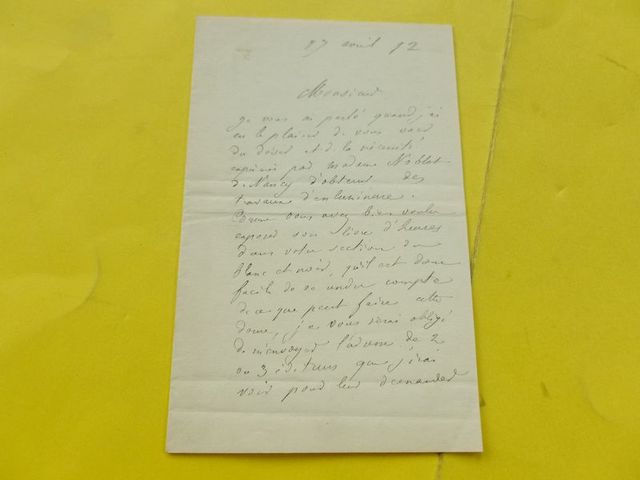 27 avril 92
Monsieur
Je vous ai parlé quand j'ai
eu le plaisir de vous voir
du désir et de la nécessité
exprimés par madame Noblot
de Nancy d'obtenir des
travaux d'enluminure.
Comme vous avez bien voulu
exposer son livre d'heures
dans votre section du
blanc et noir, qu'il est donc
facile de se rendre compte
de ce que peut faire cette
dame, je vous serai obligé
de m'envoyer l'adresse de 2
ou 3 éditeurs que j'irai
voir pour leur demander